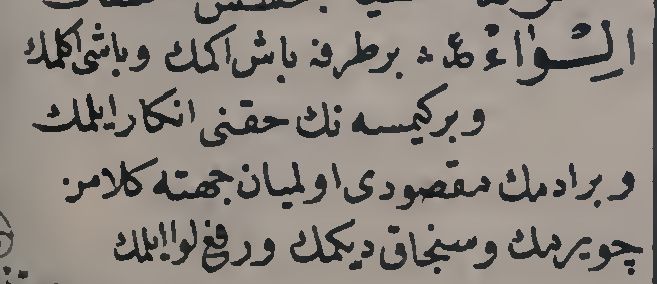 بر طرفه باش اكمك و باشی اكلمك
و بر كیمسه نك حقنی انكار ایلمك
و بر ادمك مقصودی اولمیان جهته كلامن
چویرمك و سنجاق دیكمك و رفع لوا ایلمك